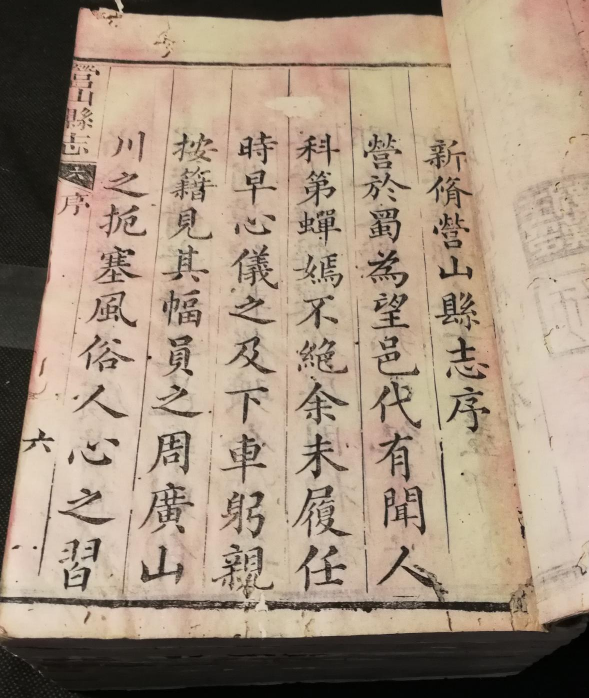 新脩營山縣志序
營於蜀為望邑代有聞人
科第蟬嫣不絶余未履任
時早心儀之及下車躬親
按籍見其幅員之周廣山
川之扼塞風俗人心之習
營山縣志
序
六